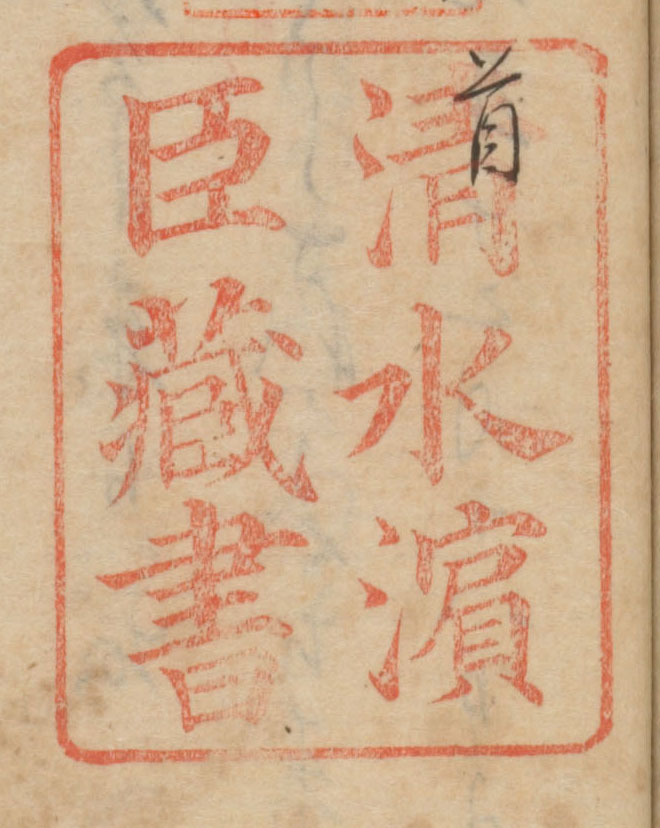 首
清水濵
臣藏書